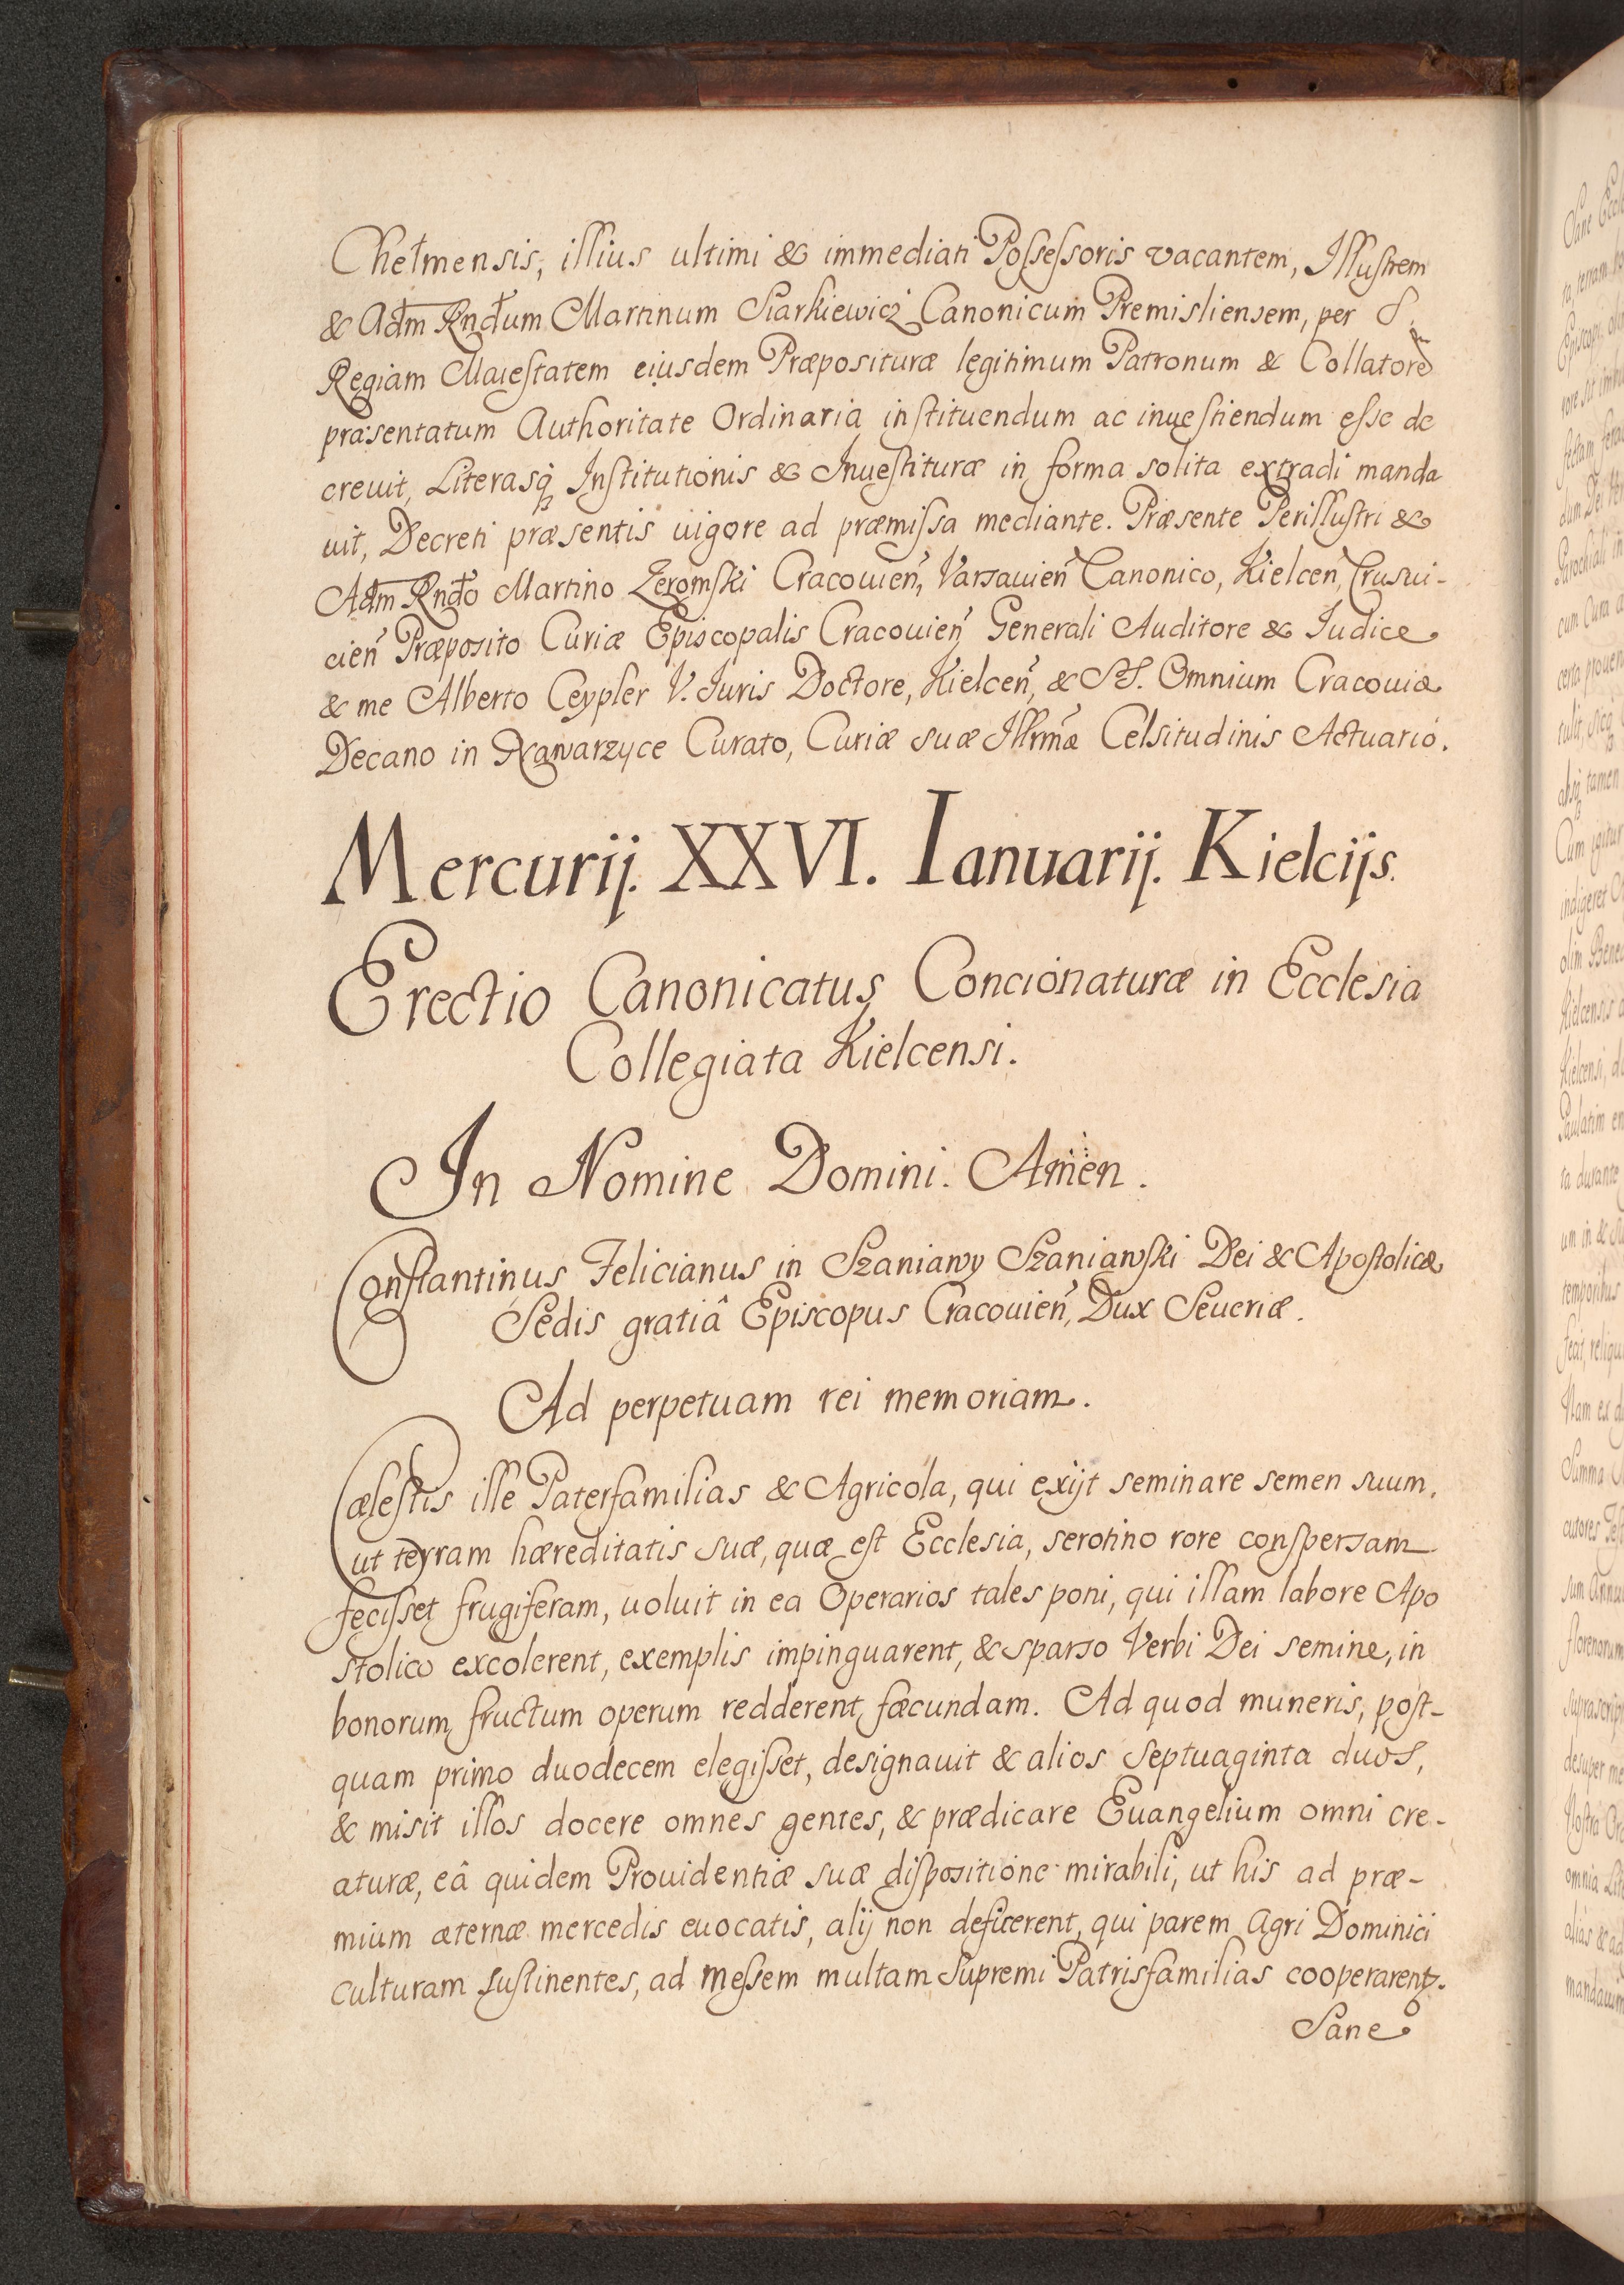 Chełmensis, illius ultimi & immediati Possessoris vacantem, Illustrem
& Adm Rndum Martinum Siarkiewicz Canonicum Premisliensem, per S.
Regiam Maiestatem eiusdem Præpositura legitimum Patronum & Collatorē
præsentatum Authoritate Ordinaria instituendum ac inuestiendum esse de
creuit, Literasq Institutionis & Inuestituræ in forma solita extradi manda
uit, Decreti præsentis uigore ad præmissa mediante. Præsente Perillustri &
Adm Rndo Martino Zeromski Cracouien, Varsauien Canonico, Kielcen, Crusui-
cien Præposito Curiæ Episcopalis Cracouien Generali Auditore & Iudice
& me Alberto Ceypler V. Iuris Doctore, Kielcen, & SS. Omnium Cracouiæ
Decano in Xawarzyce Curato, Curiæ suæ Illrmæ Celsitudinis Actuario.
Mercurij. XXVI. Ianuarij. Kielcijs.
Erectio Canonicatus Concionaturæ in Ecclesia
Collegiata Kielcensi.
In Nomine Domini. Amen.
Constantinus Felicianus in Szaniawy Szaniawski Dei & Apostolicæ
Sedis gratiâ Episcopus Cracouien, Dux Seueriæ.
Ad perpetuam rei memoriam.
Cælestis ille Paterfamilias & Agricola, qui exijt seminare semen suum,
ut terram hæreditatis suæ, quæ est Ecclesia, serotino rore conspersam
fecisset frugiferam, uoluit in ea Operarios tales poni, qui illam labore Apo
stolico excolerent, exemplis impinguarent, & sparso Verbi Dei semine, in
bonorum fructum operum redderent fæcundam. Ad quod muneris, post-
quam primo duodecem elegisset, designauit & alios Septuaginta duos,
& misit illos docere omnes gentes, & prædicare Euangelium omni cre-
aturæ, eâ quidem Prouidentiæ suæ dispositione mirabili, ut his ad præ-
mium æternæ mercedis euocatis, alij non deficerent, qui parem Agri Dominici
culturam sustinentes, ad Messem multam Supremi Patrisfamilias cooperarent.
Sane